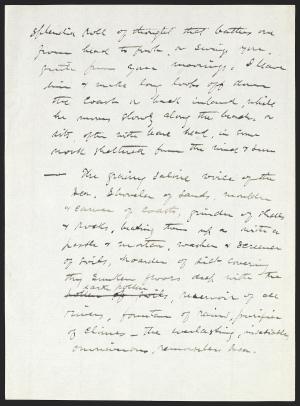 splendid roll of thought that bathes one
from head to foot, or swings you
quite from your moorings. I leave
him & make long loops off down
the coast or back inland, while
he moves slowly along the beach, or
sits often with bare head, in some
nook sheltered from the wind & sun
— The grainy saline voice of the
sea. Shoveler of sands, moulder
& carver of coasts, grinder of shells
& rocks, beating them up as with a
pestle & mortar, washer & screener
of soils, hoarder of silt covering
thy sunken floors deep with the
dark pollen
of soils, reservoir of all
rivers, fountain of rain, purifier
of climes — the everlasting, insatiable
omnivorous, remorseless sea.